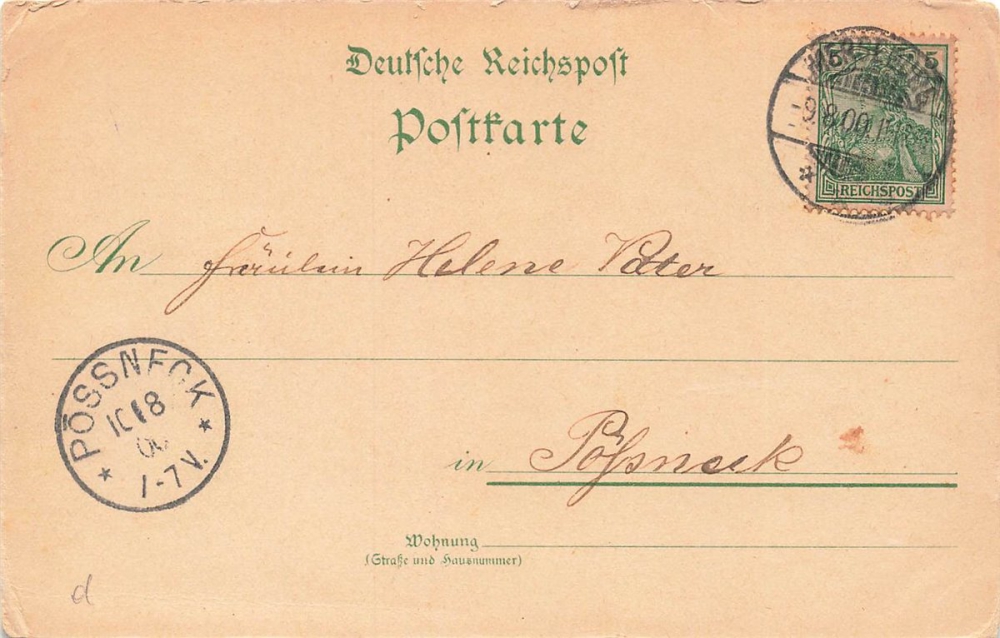 Deutsche Reichspost
Postkarte
5 5
9.8.00.
REICHSPOST
An Fräulein Helene Vetter
PÖSSNECK
10 8
00
1-7 V.
in Pößneck
Wohnung
(Straße und Hausnummer)
d